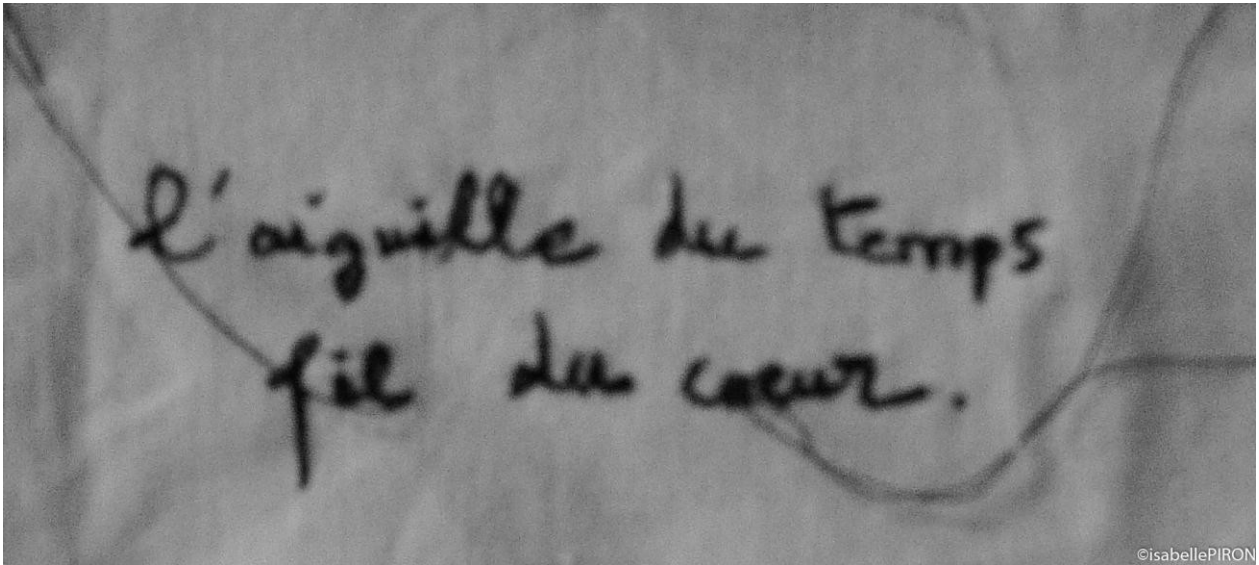 l'aiguille du temps
fil du cœur.
©isabellePIRON